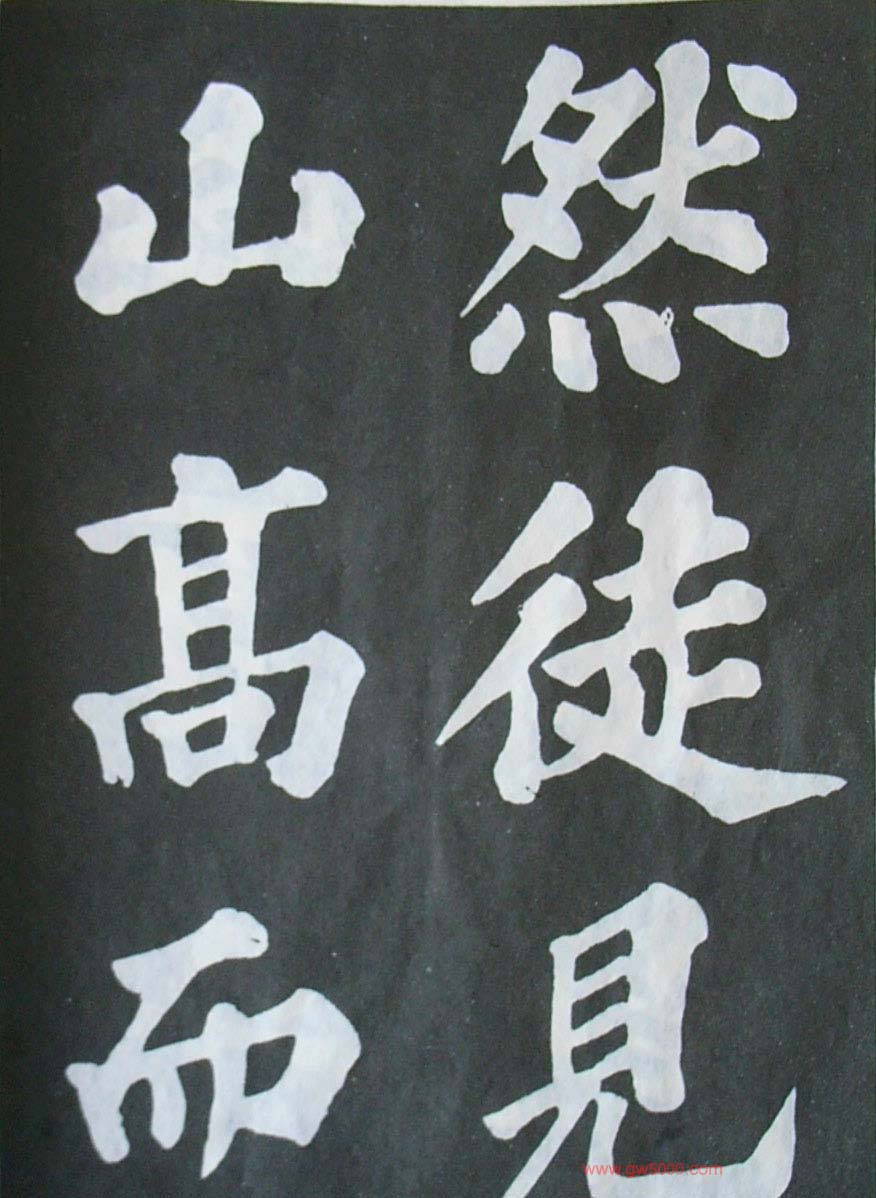 然徒見
山髙而
www.gw5000.com